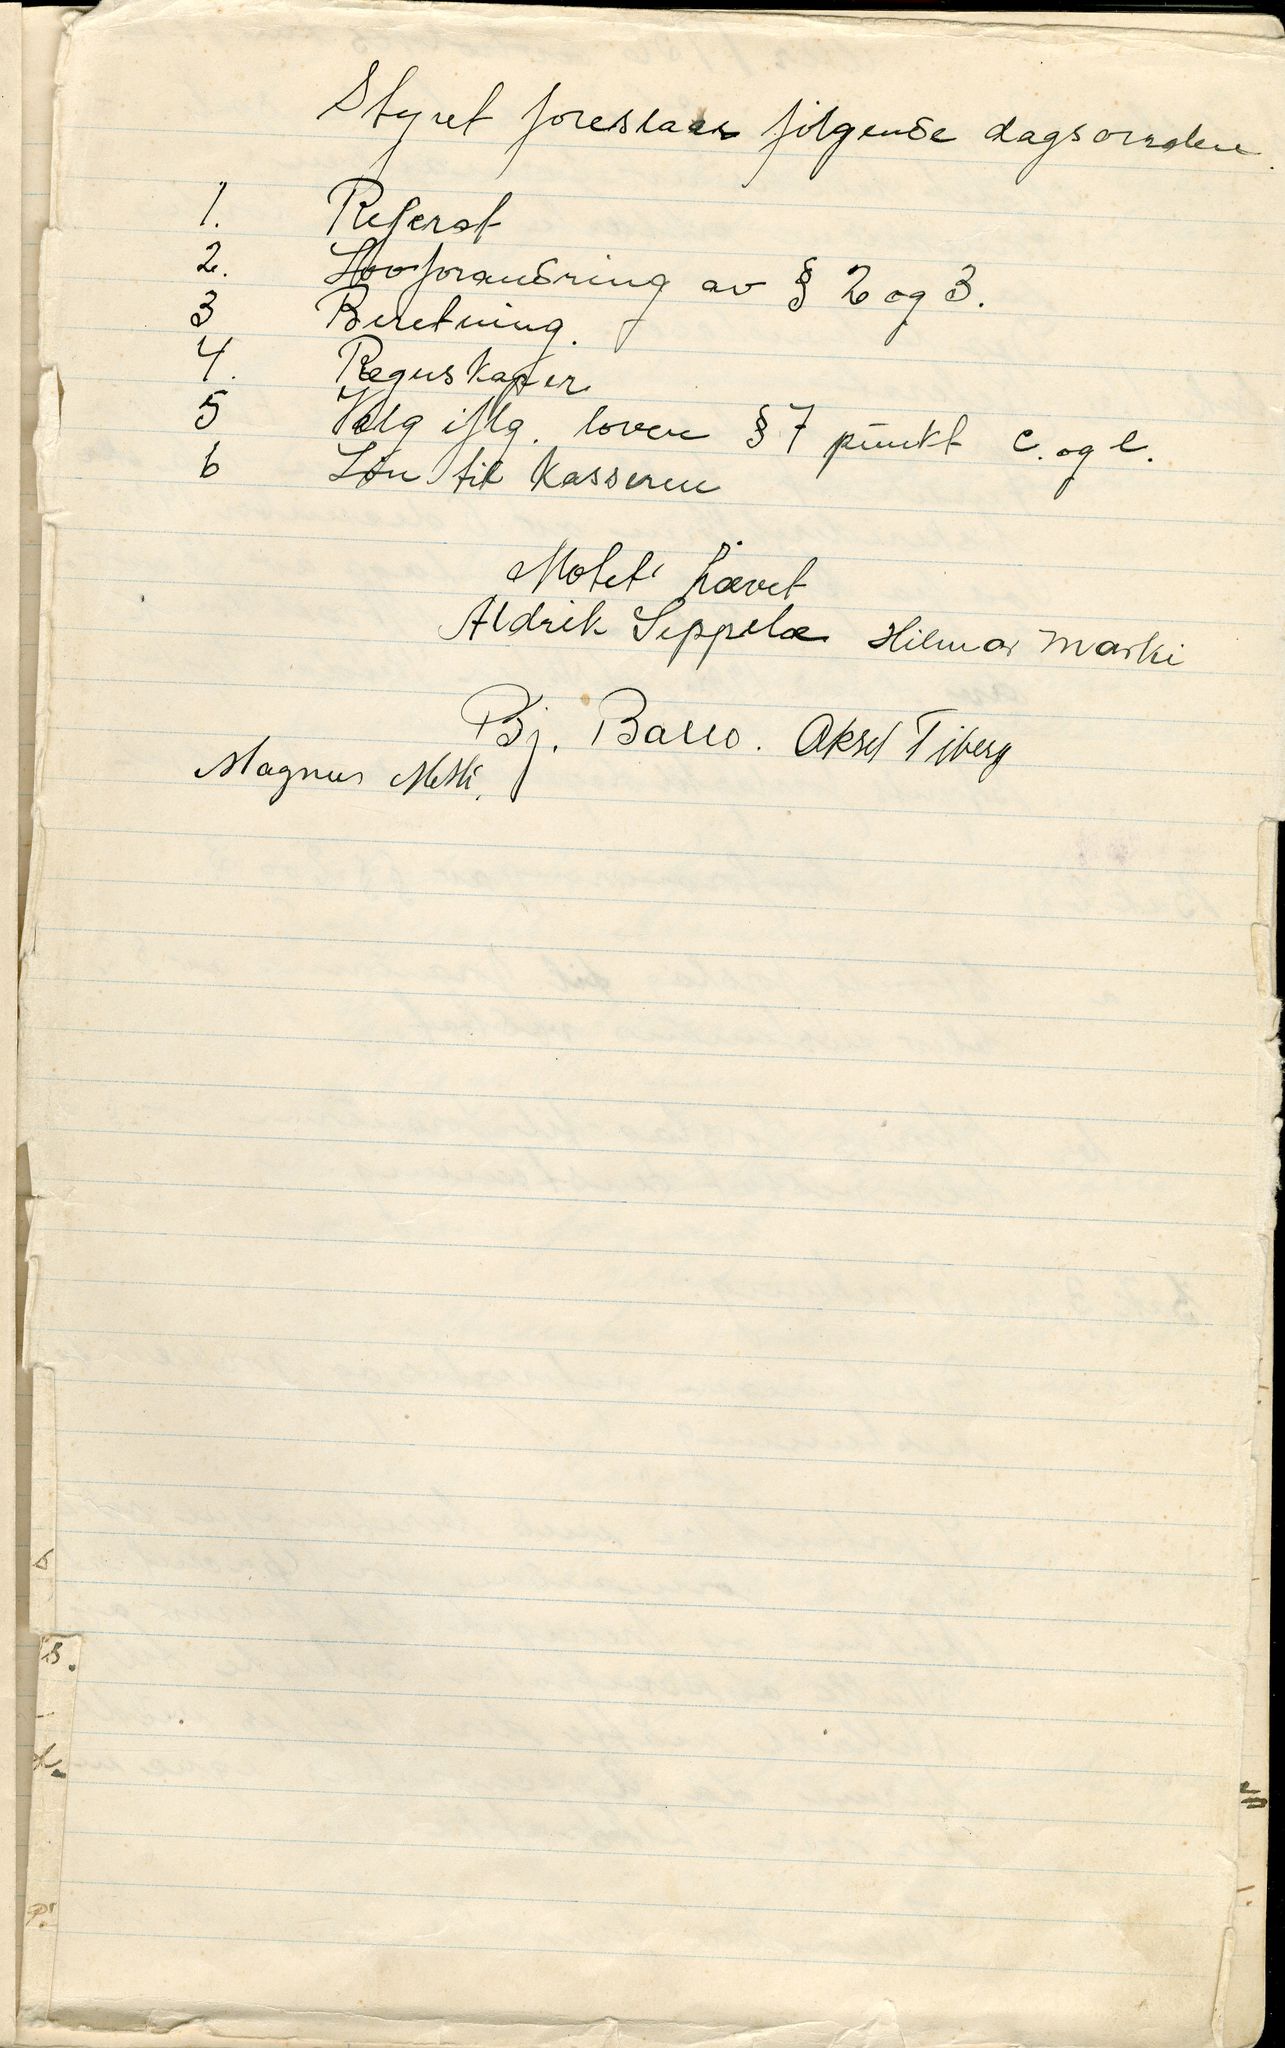 Styret foreslaar følgende dagsorden.
1. Referat
2. Lovforandring av § 2 og 3.
3 Beretning.
4. Regnskaper
5 Valg iflg. loven § 7 punkt c. og e.
6 Løn til Kasseren
Møtet hævet
Aldrik Seppelæ Hilmar Marki
Bj. Basso. Aksel Tiberg
Magnus